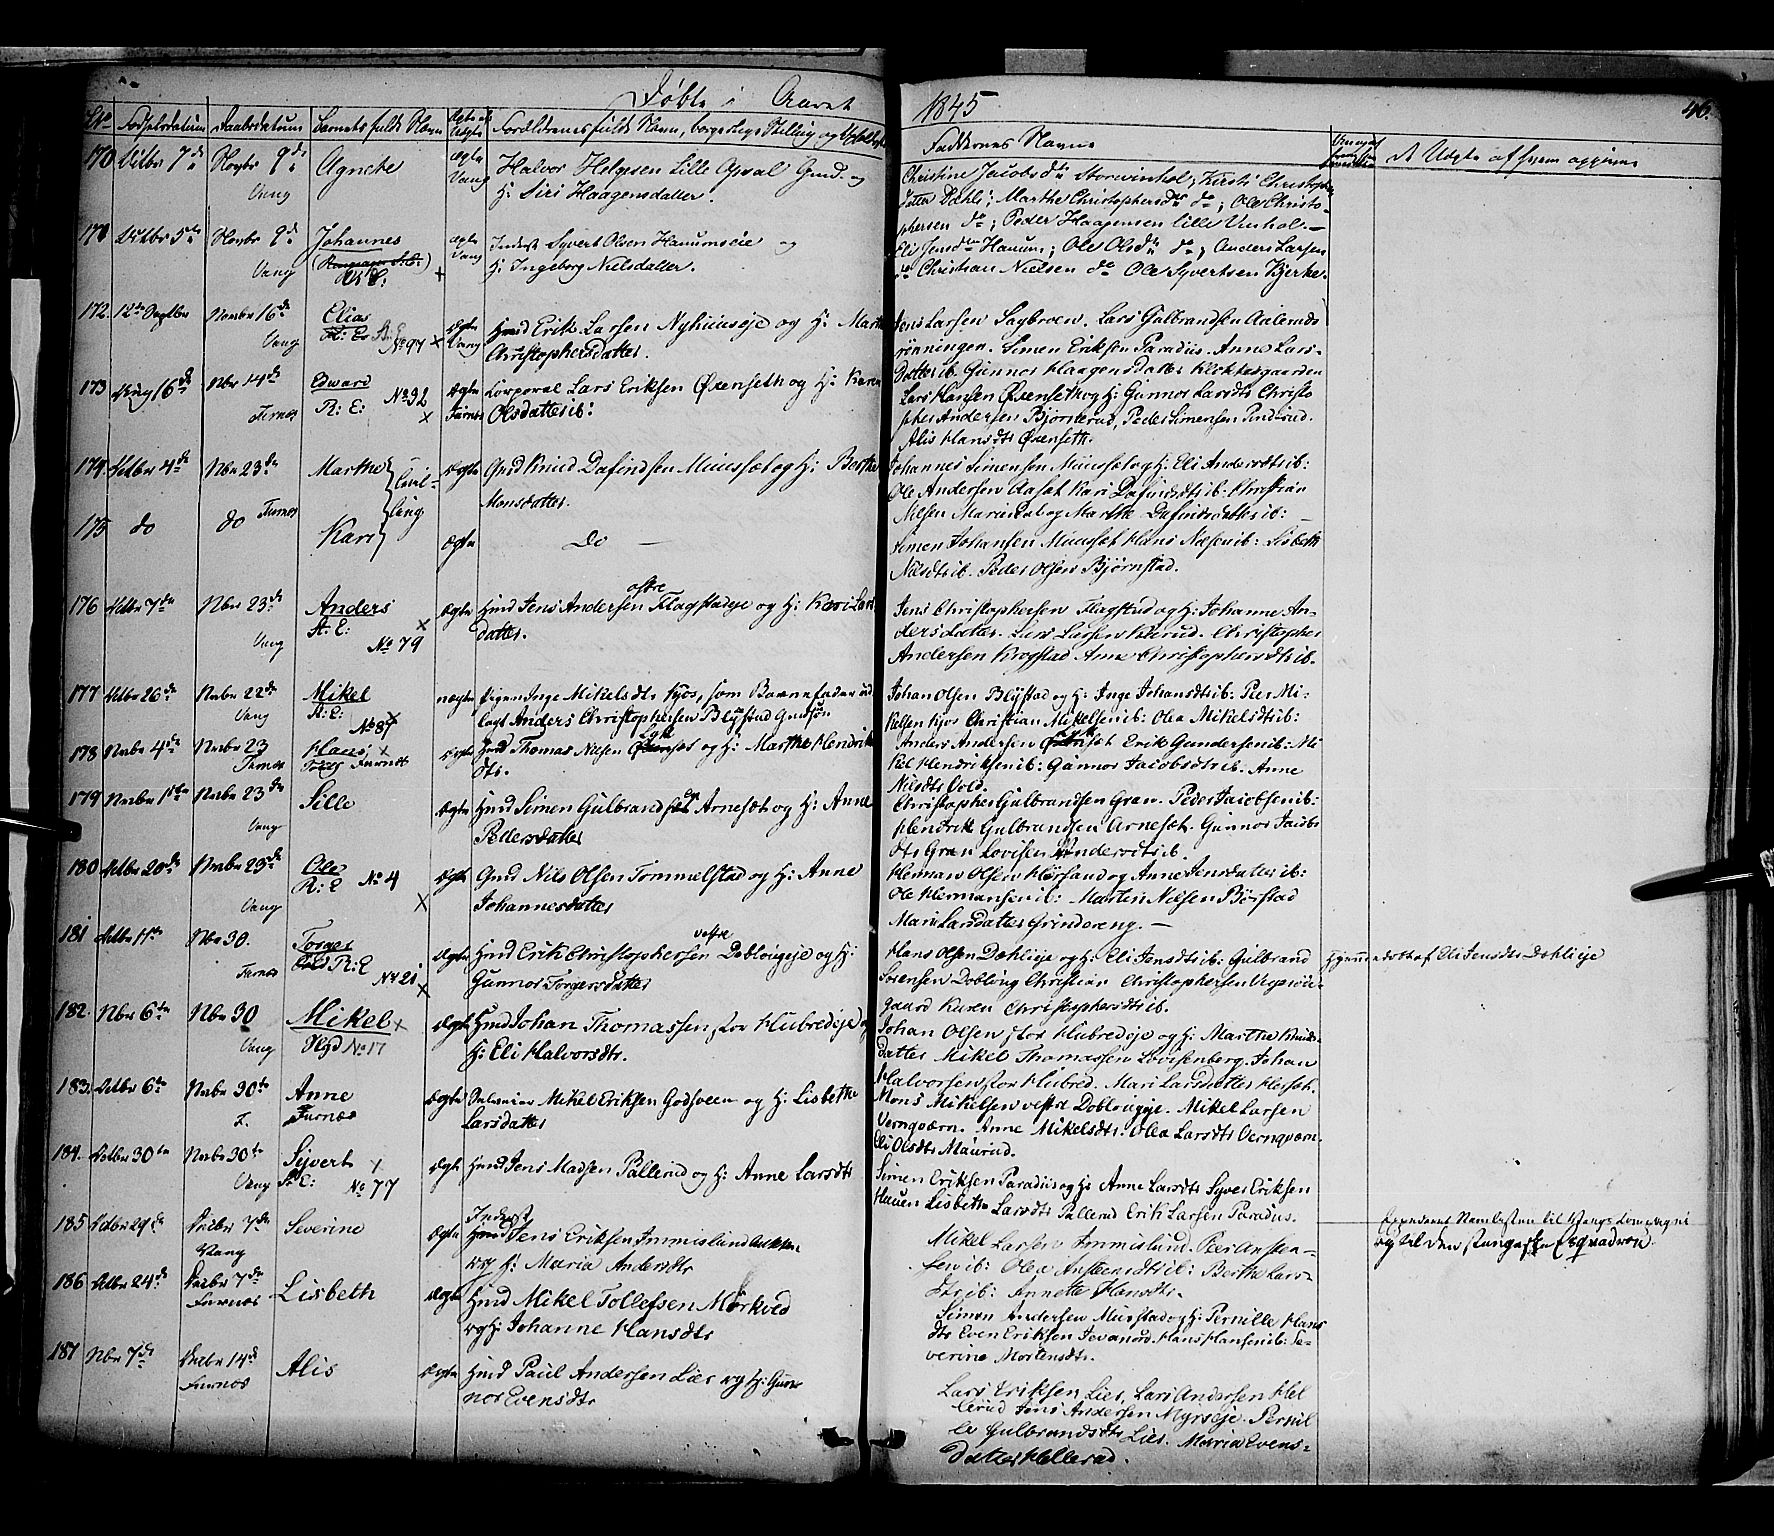 Døbte i Aaret
1845
46.
No Fødselsdatum Daabsdatum Barnets fulde Navn Ægte el. Uægte Forældrenes fulde Navn, borgerlige Stilling og Opholdssted
Faddernes Navne
De Uægte af hvem
170 Octbr 7de Novbr 9de Agnethe ægte Halvor Helgesen Lille Opsal Gmd. og
Vang Vang H: Siri Haagensdatter.
Christine Jacobsdr Storvinhol; Kirsti Christophers
datter Dahli; Marthe Christophersdr do; Ole Christo-
phersen do; Peder Haagensen lille Vinhol.
171 Octbr 5te Novbr 9de Johannes ægte Inderst Syvert Olsen Hanumseie og
Vang Vang H: Ingeborg Nielsdatter.
Eli Jensdtr Hanum; Ole Olsdr do; Anders Larsen
do Christian Nielsen do Ole Syvertsen Bjerke.
172. 12te Septbr Novbr 16de Elias ægte Hmd Erik Larsen Nyhuuseje og H: Marthe
Vang No 97 x Vang Christophersdatter.
Jens Larsen Sagbroen. Lars Gulbrandsen Aalerud-
rønningen. Simen Eriksen Paradiis. Anne Lars-
datter ib. Gunnor Haagensdatter Klokkergaarden
173 Aug 16de Nbr 14de Edvard No 92 ægte Korporal Lars Eriksen Øxenseth og H: Karen
Furnæs R: E: x Furnæs Olsdatter ib:
Lars Hansen Øxenseth og H: Gunnor Larsdtr Christo
pher Andersen Bjørnerud, Peder Simensen Pinderud.
Alis Hansdtr Øxenseth.
174 Octbr 4de Nbr 23de Marthe Tvil- ægte Gmd Knud Dafindsen Muusset og H: Berthe
Furnæs ling Monsdatter.
Johannes Simensen Muusset og H: Eli Andersdtr ib:
Ole Andersen Aaset Kari Dafindsdtr ib. Christian
Nilsen Mariendal og Marthe Dafindsdatter ib:
175 do do Kari ægte Do —
Simen Johansen Muusset Hans Nilsen ib: Lisbeth
Nilsdtr ib. Peder Olsen Bjørnstad.
176 Octbr 7de Nbr 23de Anders ægte Hmd Jens Andersen østre Flagstadeje og H: Kari Lars
Vang A: E: No 79 x datter.
Jens Christophersen Flagstad og H: Johanne An-
dersdatter. Lars Larsen Kiærud. Christopher
Andersen Krogstad Anne Christophersdtr ib.
177 Octbr 26de Novbr 22de Mikel uægte Pigen Inge Mikelsdtr Kjos, som Barnefader ud
Vang A: E: No 87 lagt Anders Christophersen Blystad Gmdsøn
Johan Olsen Blystad og H: Inge Johansdtr ib. Peer Mi-
kelsen Kjos Christian Mikelsen ib: Olea Mikelsdtr ib:
178 Novbr 4de Novbr 23 Hans x ægte Hmd Thomas Nilsen og H: Marthe Hendriks
Furnæs Furnæs dtr.
Anders Andersen Erik Gundersen ib: Mi
kel Hendriksen ib: Gunnor Jacobsdtr ib. Anne
Nilsdtr Vold.
179 Novbr 11te Novbr 23de Sille ægte Hmd Simen Gulbrandsen Arneset og H: Anne
Vang Pedersdatter
Christopher Gulbrandsen Gran. Peder Jacobsen ib:
Hendrik Gulbrandsen Arneset. Gunnor Jacobs
dtr Gran Lovise Andersdtr ib.
180 Octbr 20de Novbr 23de Ole No 4 ægte Gmd Nils Olsen Tommelstad og H: Anne
Vang R: E x Johannesdatter
Herman Olsen Hørsand og Anne Jensdatter ib:
Ole Hermansen ib: Morten Nilsen Børstad
Mari Larsdatter Grindereng. —
181 Octbr 11te Nbr 30. Torger ægte Hmd Erik Christophersen vestre Dobloügeje og H:
Furnæs R: E No 21 x Gunnor Torgersdatter
Hans Olsen Dæhlieje og H: Eli Jensdtr ib: Gulbrand
Sørensen Dobloug Christian Christophersen
gaard Karen Christophersdtr ib.
Hjemmedøbt af Eli Jensdtr Dæhlieje
182. Nbr 6te Nbr 30 Mikel x ægte Hmd Johan Thomassen stor Hubredeje og
Vang No 17 H: Eli Halvorsdtr.
Johan Olsen stor Hubredeje og H: Marthe Knuds-
datter Mikel Thomassen Lovisenberg. Johan
Halvorsen stor Hubred. Mari Larsdatter
183. Octbr 6te Novbr 30te Anne ægte Mikel Eriksen Godsveen og H: Lisbethe
F. Furnæs Larsdatter
Mons Mikelsen vestre Dobloügeje. Mikel Larsen
Verngværn. Anne Mikelsdtr. Olea Larsdtr Verngværn.
Eli Olsdtr Maurud.
184. Octbr 30te Novbr 30te Syvert x ægte Hmd Jens Madsen Pallerud og H: Anne Larsdtr
Vang S: E: No 77
Simen Eriksen Paradiis og H: Anne Larsdtr Syver Eriksen
Hauen Lisbethe Larsdtr Pallerud Erik Larsen Paradiis.
185 Octbr 29de Decbr 7de Severine ægte Inderst Jens Eriksen Immislund
Vang og H: Maria Andersdtr
Mikel Larsen Immislund. Peer Ansten-
sen ib: Olea Anstensdtr ib: Berthe Lars-
dtr ib: Annette Hansdtr.
Navnelisten til Vangs Kompagni
og til den stangeske Esqvadron.
186 Octbr 24de Decbr 7de Lisbeth ægte Hmd Mikel Tollefsen Mørkved
Furnæs og H: Johanne Hansdtr
Simen Andersen Muustad og H: Pernille Hans
dtr Even Eriksen Jevanord. Hans Hansen ib: Se-
verine Mortensdtr.
187 Nbr 7de Decbr 14de Alis ægte Hmd Paul Andersen Lier og H: Gun
Furnæs nor Evensdtr
Lars Eriksen Lier, Lars Andersen Hel
lerud Jens Andersen Myrseje. Pernil
le Gulbrandsdtr Lier. Maria Evens-
datter Hellerud.